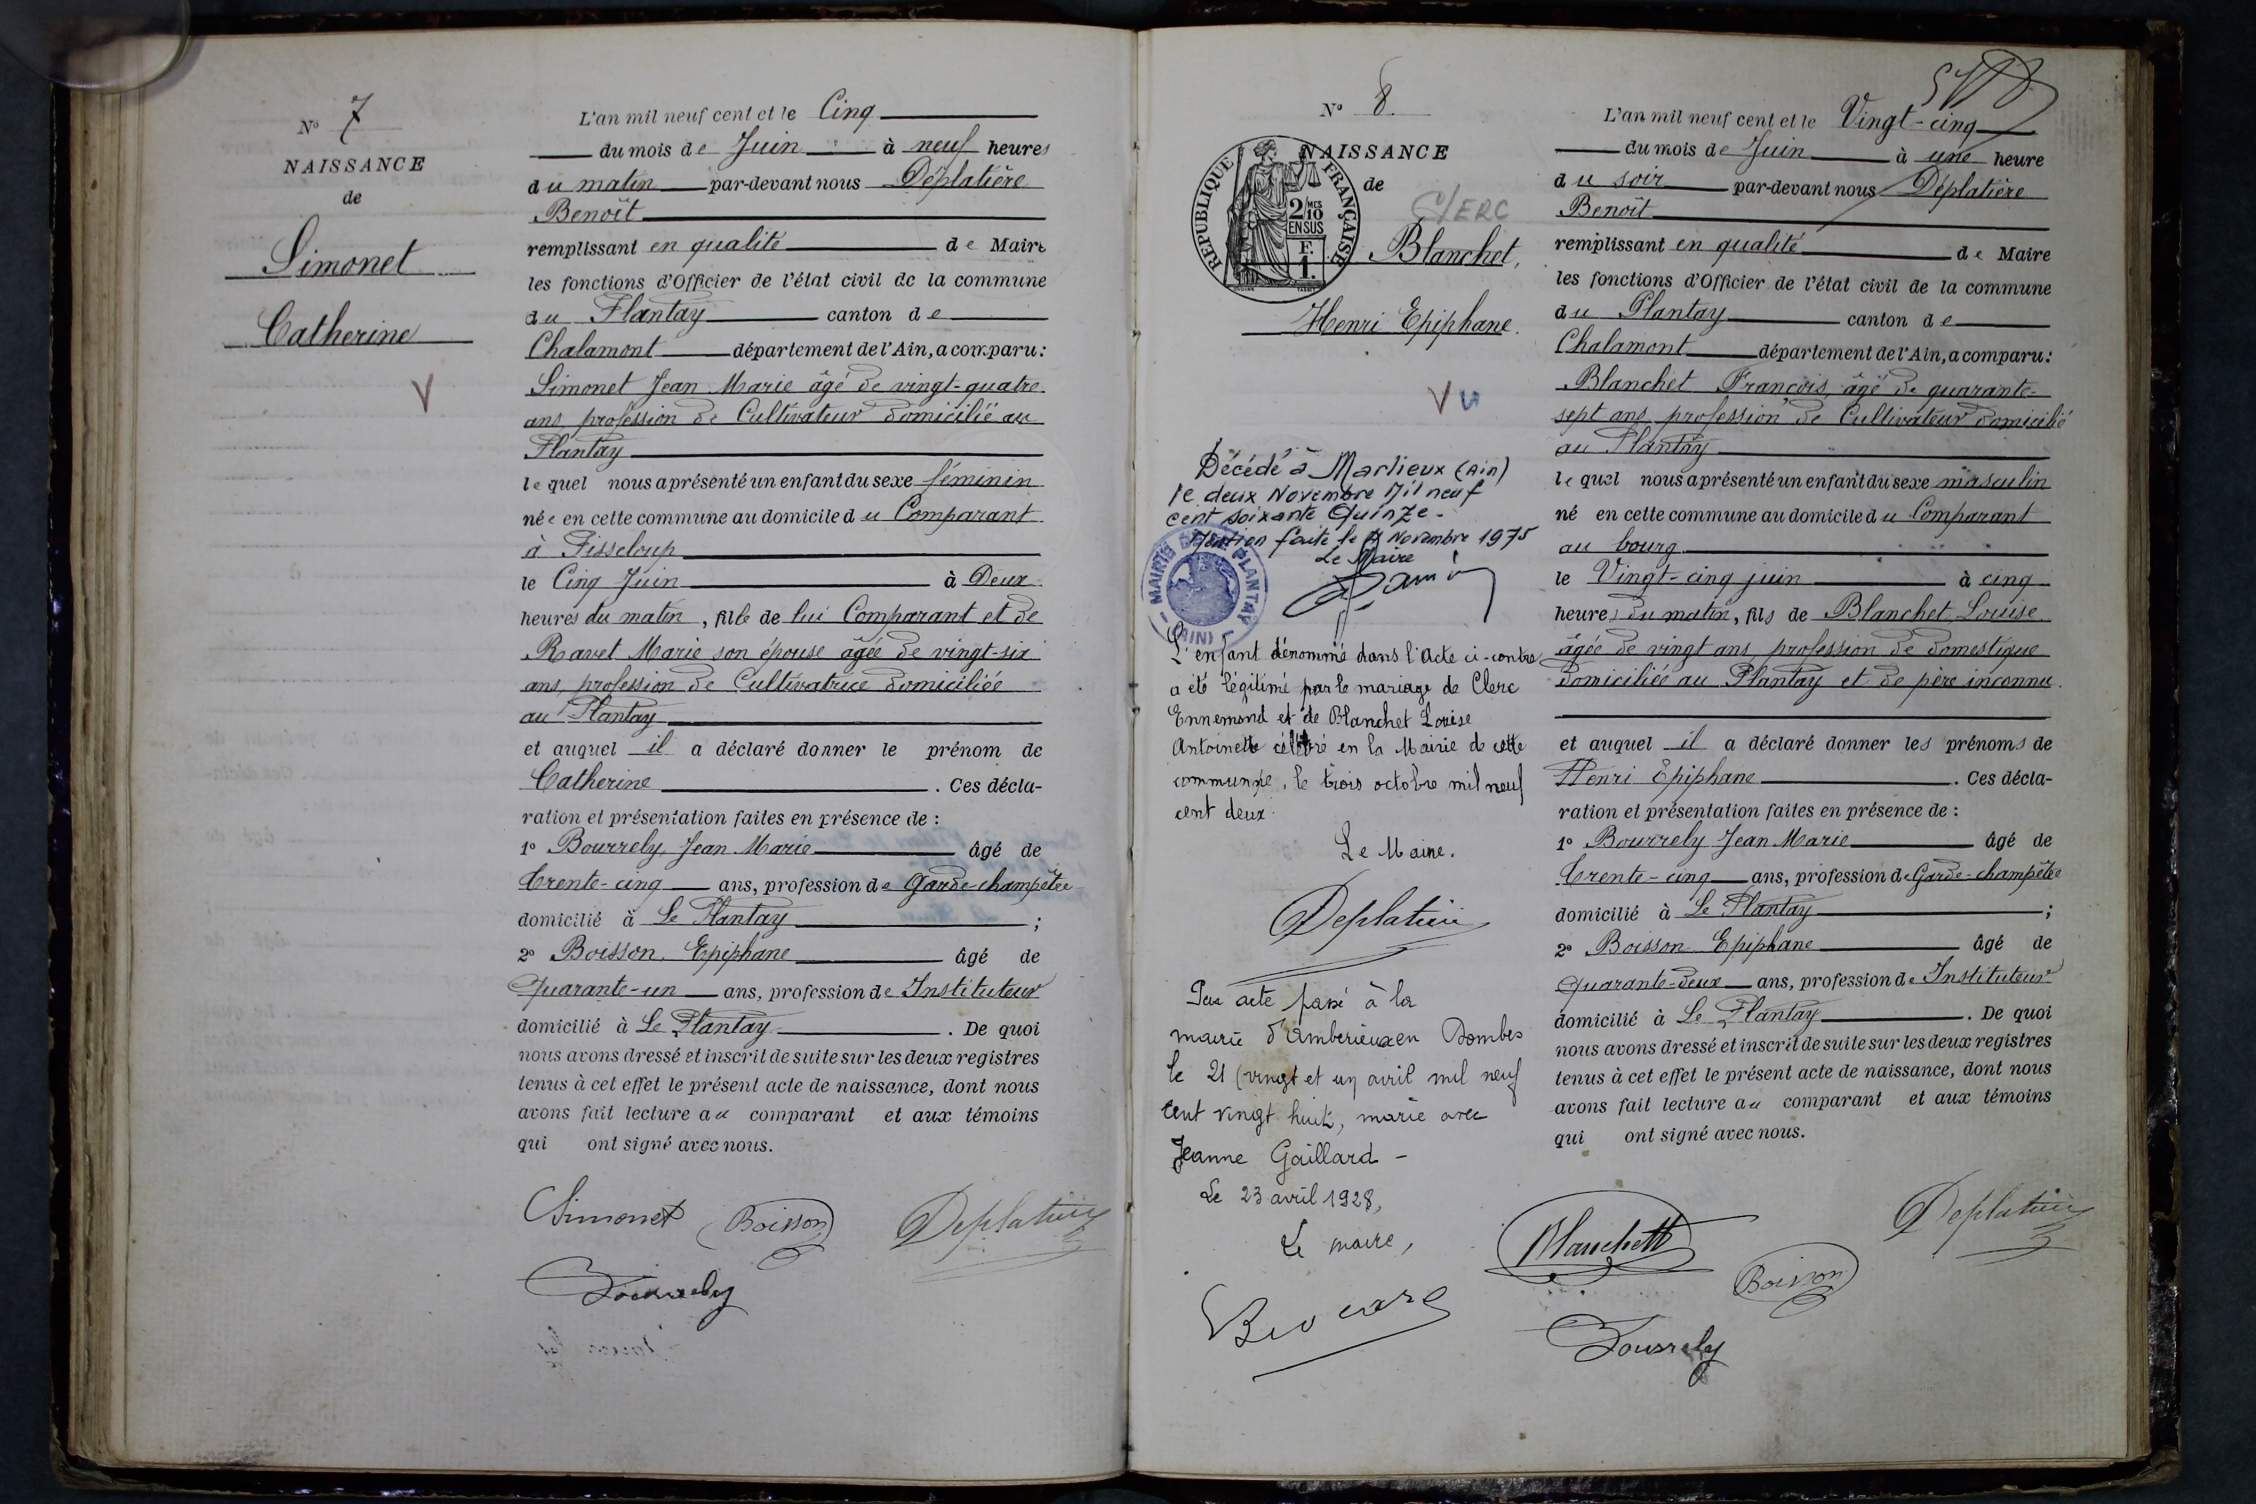 N° 7
NAISSANCE
de
Simonet
Catherine
V
L'an mil neuf cent et le Cinq
du mois de Juin à neuf heures
du matin par-devant nous Déplatière
Benoît
remplissant en qualité de Maire
les fonctions d'Officier de l'état civil de la commune
du Plantay canton de
Chalamont département de l'Ain, a comparu:
Simonet Jean Marie âgé de vingt-quatre
ans, profession de Cultivateur domicilié au
Plantay
lequel nous a présenté un enfant du sexe féminin
née en cette commune au domicile du Comparant
à Fisseloup
le Cinq Juin à Deux
heures du matin, fille de lui Comparant et de
Ravet Marie son épouse âgée de vingt-six
ans, profession de Cultivatrice domiciliée
au Plantay
et auquel il a déclaré donner le prénom de
Catherine. Ces décla-
ration et présentation faites en présence de :
1° Bourrely, Jean Marie âgé de
trente-cinq ans, profession de Garde-champêtre
domicilié à Le Plantay ;
2° Boisson, Epiphane âgé de
Quarante-un ans, profession de Instituteur
domicilié à Le Plantay. De quoi
nous avons dressé et inscrit de suite sur les deux registres
tenus à cet effet le présent acte de naissance, dont nous
avons fait lecture au comparant et aux témoins
qui ont signé avec nous.
Simonet Boisson Deplatière
Bourrely
N° 8
NAISSANCE
de
RÉPUBLIQUE FRANÇAISE
2/10 MES
EN SUS
F.
1.
Clerc
Blanchet,
Henri Epiphane.
Vu
Décédé à Marlieux (Ain)
le deux Novembre Mil neuf
cent soixante Quinze.
Mention faite le Novembre 1975
Le Maire
MAIRIE PLANTAY (AIN)
L'enfant dénommé dans l'Acte ci-contre
a été légitimé par le mariage de Clerc
Ennemond et de Blanchet Louise
Antoinette célébré en la Mairie de cette
commune, le trois octobre mil neuf
cent deux.
Le Maire.
Deplatière
Par acte passé à la
mairie d'Ambérieux en Dombes
le 21 (vingt et un avril mil neuf
cent vingt huit, marié avec
Jeanne Gaillard -
Le 23 avril 1928,
Le maire,
L'an mil neuf cent et le Vingt-cinq
du mois de Juin à une heure
du soir par-devant nous Déplatière
Benoît
remplissant en qualité de Maire
les fonctions d'Officier de l'état civil de la commune
du Plantay canton de
Chalamont département de l'Ain, a comparu:
Blanchet François, âgé de quarante-
sept ans, profession de Cultivateur domicilié
au Plantay
lequel nous a présenté un enfant du sexe masculin
né en cette commune au domicile du Comparant
au bourg
le Vingt-cinq juin à cinq
heures du matin, fils de Blanchet Louise
âgée de vingt ans, profession de domestique
domiciliée au Plantay et de père inconnu.
et auquel il a déclaré donner les prénoms de
Henri Epiphane. Ces décla-
ration et présentation faites en présence de :
1° Bourrely Jean Marie âgé de
trente-cinq ans, profession de Garde-champêtre
domicilié à Le Plantay ;
2° Boisson Epiphane âgé de
Quarante-deux ans, profession de Instituteur
domicilié à Le Plantay. De quoi
nous avons dressé et inscrit de suite sur les deux registres
tenus à cet effet le présent acte de naissance, dont nous
avons fait lecture au comparant et aux témoins
qui ont signé avec nous.
Blanchett Deplatière
Boisson
Bourrely